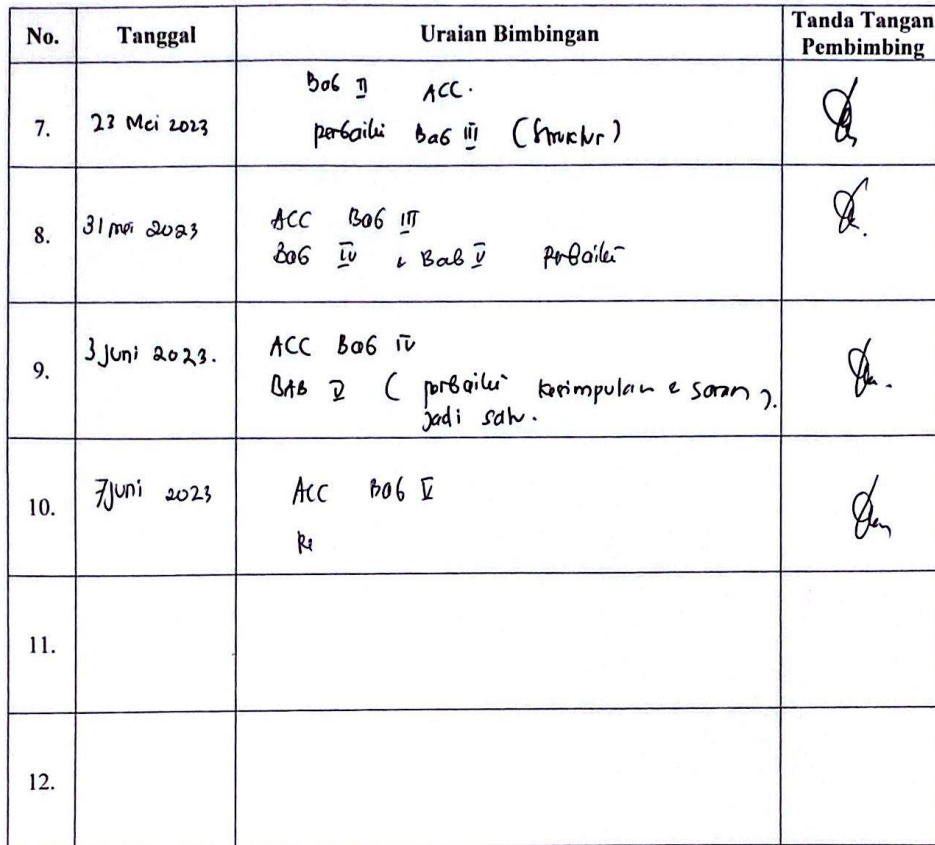 No. Tanggal Uraian Bimbingan Tanda Tangan Pembimbing
7. 23 Mei 2023
Bab II ACC.
perbaiki Bab III (Struktur)
8. 31 mei 2023
ACC Bab III
Bab IV & Bab V perbaiki
9. 3 Juni 2023.
ACC Bab IV
BAB V (perbaiki kesimpulan & saran).
jadi satu.
10. 7 Juni 2023
ACC Bab V
Re
11.
12.